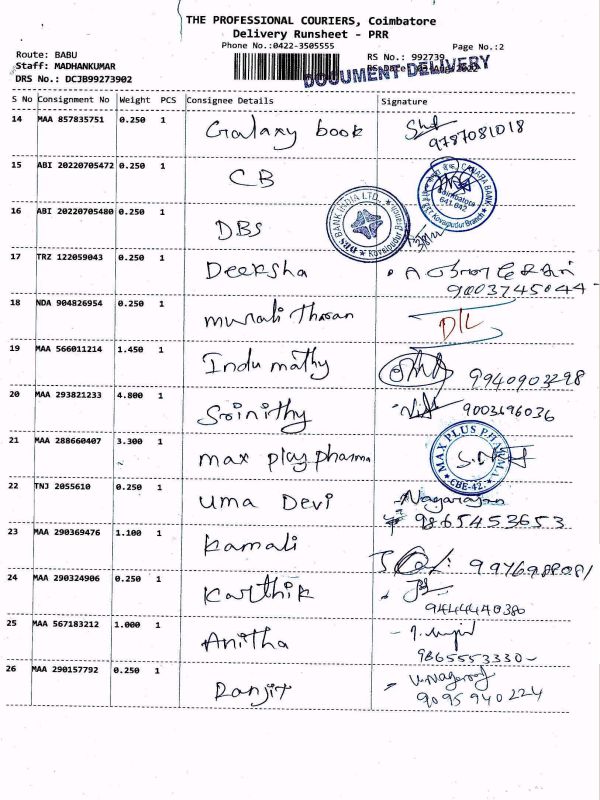 THE PROFESSIONAL COURIERS, Coimbatore
Delivery Runsheet - PRR
Phone No.:0422-3505555
Page No.:2
Route: BABU
RS No.: 992739
Staff: MADHANKUMAR
DOCUMENT DELIVERY
DRS No.: DCJB99273902
S No Consignment No Weight PCS Consignee Details Signature
14 MAA 857835751 0.250 1 Galaxy book 9787081018
15 ABI 20220705472 0.250 1 CB CANARA BANK Coimbatore 641 042 Kovaipudur Branch
16 ABI 20220705480 0.250 1 DBS BANK INDIA LTD. Kovaipudur Branch
17 TRZ 122059043 0.250 1 Deeksha 9003745044
18 NDA 904826954 0.250 1 murali Tharan D/L
19 MAA 566011214 1.450 1 Indu mathy 9940903298
20 MAA 293821233 4.800 1 Srinithy 9003696036
21 MAA 288660407 3.300 1 max play pharma MAX PLUS PHARMA CBE-42.
22 TNJ 2055610 0.250 1 Uma Devi Nagarajan 9865453653
23 MAA 290369476 1.100 1 Kamali 9976989081
24 MAA 290324906 0.250 1 Karthik 9444440380
25 MAA 567183212 1.000 1 Anitha 9865553330
26 MAA 290157792 0.250 1 Ranjit 9095940224